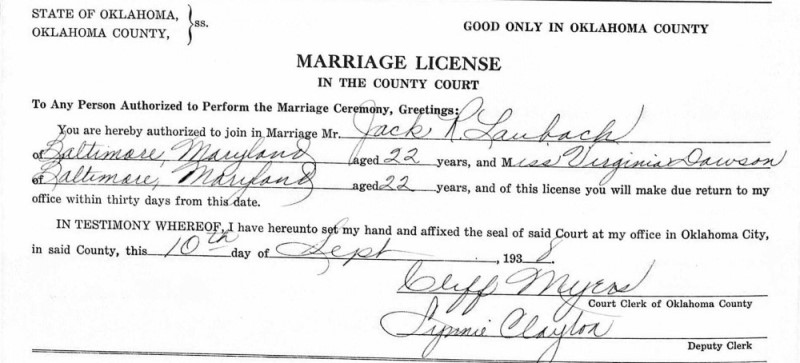 STATE OF OKLAHOMA, } ss.
OKLAHOMA COUNTY,
GOOD ONLY IN OKLAHOMA COUNTY
MARRIAGE LICENSE
IN THE COUNTY COURT
To Any Person Authorized to Perform the Marriage Ceremony, Greetings:
You are hereby authorized to join in Marriage Mr. Jack R. Laubach
of Baltimore, Maryland aged 22 years, and Miss Virginia Dawson
of Baltimore, Maryland aged 22 years, and of this license you will make due return to my
office within thirty days from this date.
IN TESTIMONY WHEREOF, I have hereunto set my hand and affixed the seal of said Court at my office in Oklahoma City,
in said County, this 10th day of Sept, 1938.
Cliff Myers
Court Clerk of Oklahoma County
Clayton
Deputy Clerk